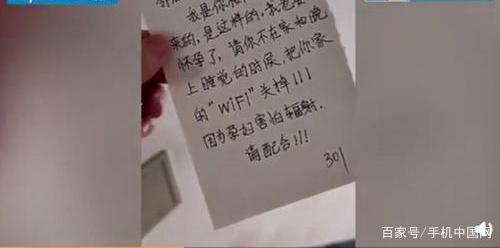 我是你
来的,是这样的,我老婆
怀孕了,请你不在家和晚
上睡觉的时候,把你家
的“WiFi”关掉!!!
因为孕妇害怕辐射.
请配合!!!
301
百家号/手机中国网